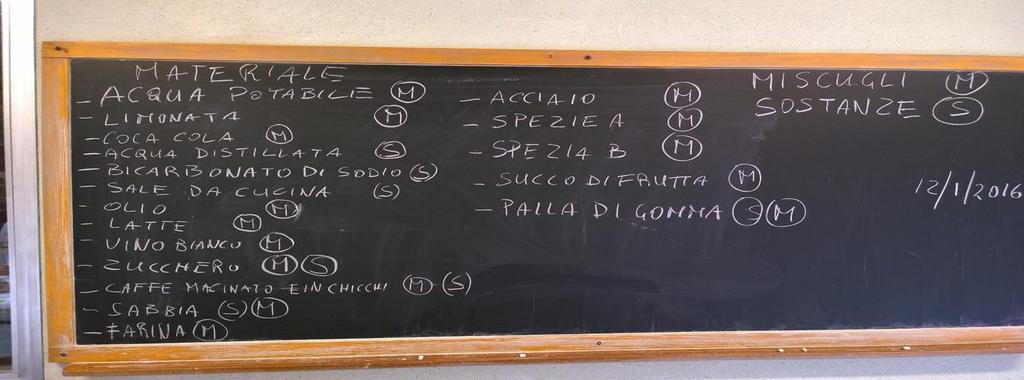 MATERIALE
- ACQUA POTABILIE (M)
- LIMONATA (M)
- COCA COLA (M)
- ACQUA DISTILLATA (S)
- BICARBONATO DI SODIO (S)
- SALE DA CUCINA (S)
- OLIO (M)
- LATTE (M)
- VINO BIANCO (M)
- ZUCCHERO (M) (S)
- CAFFE MACINATO E IN CHICCHI (M) (S)
- SABBIA (S) (M)
- FARINA (M)
- ACCIAIO (M)
- SPEZIE A (M)
- SPEZIA B (M)
- SUCCO DI FRUTTA (M)
- PALLA DI GOMMA (S) (M)
MISCUGLI (M)
SOSTANZE (S)
12/1/2016